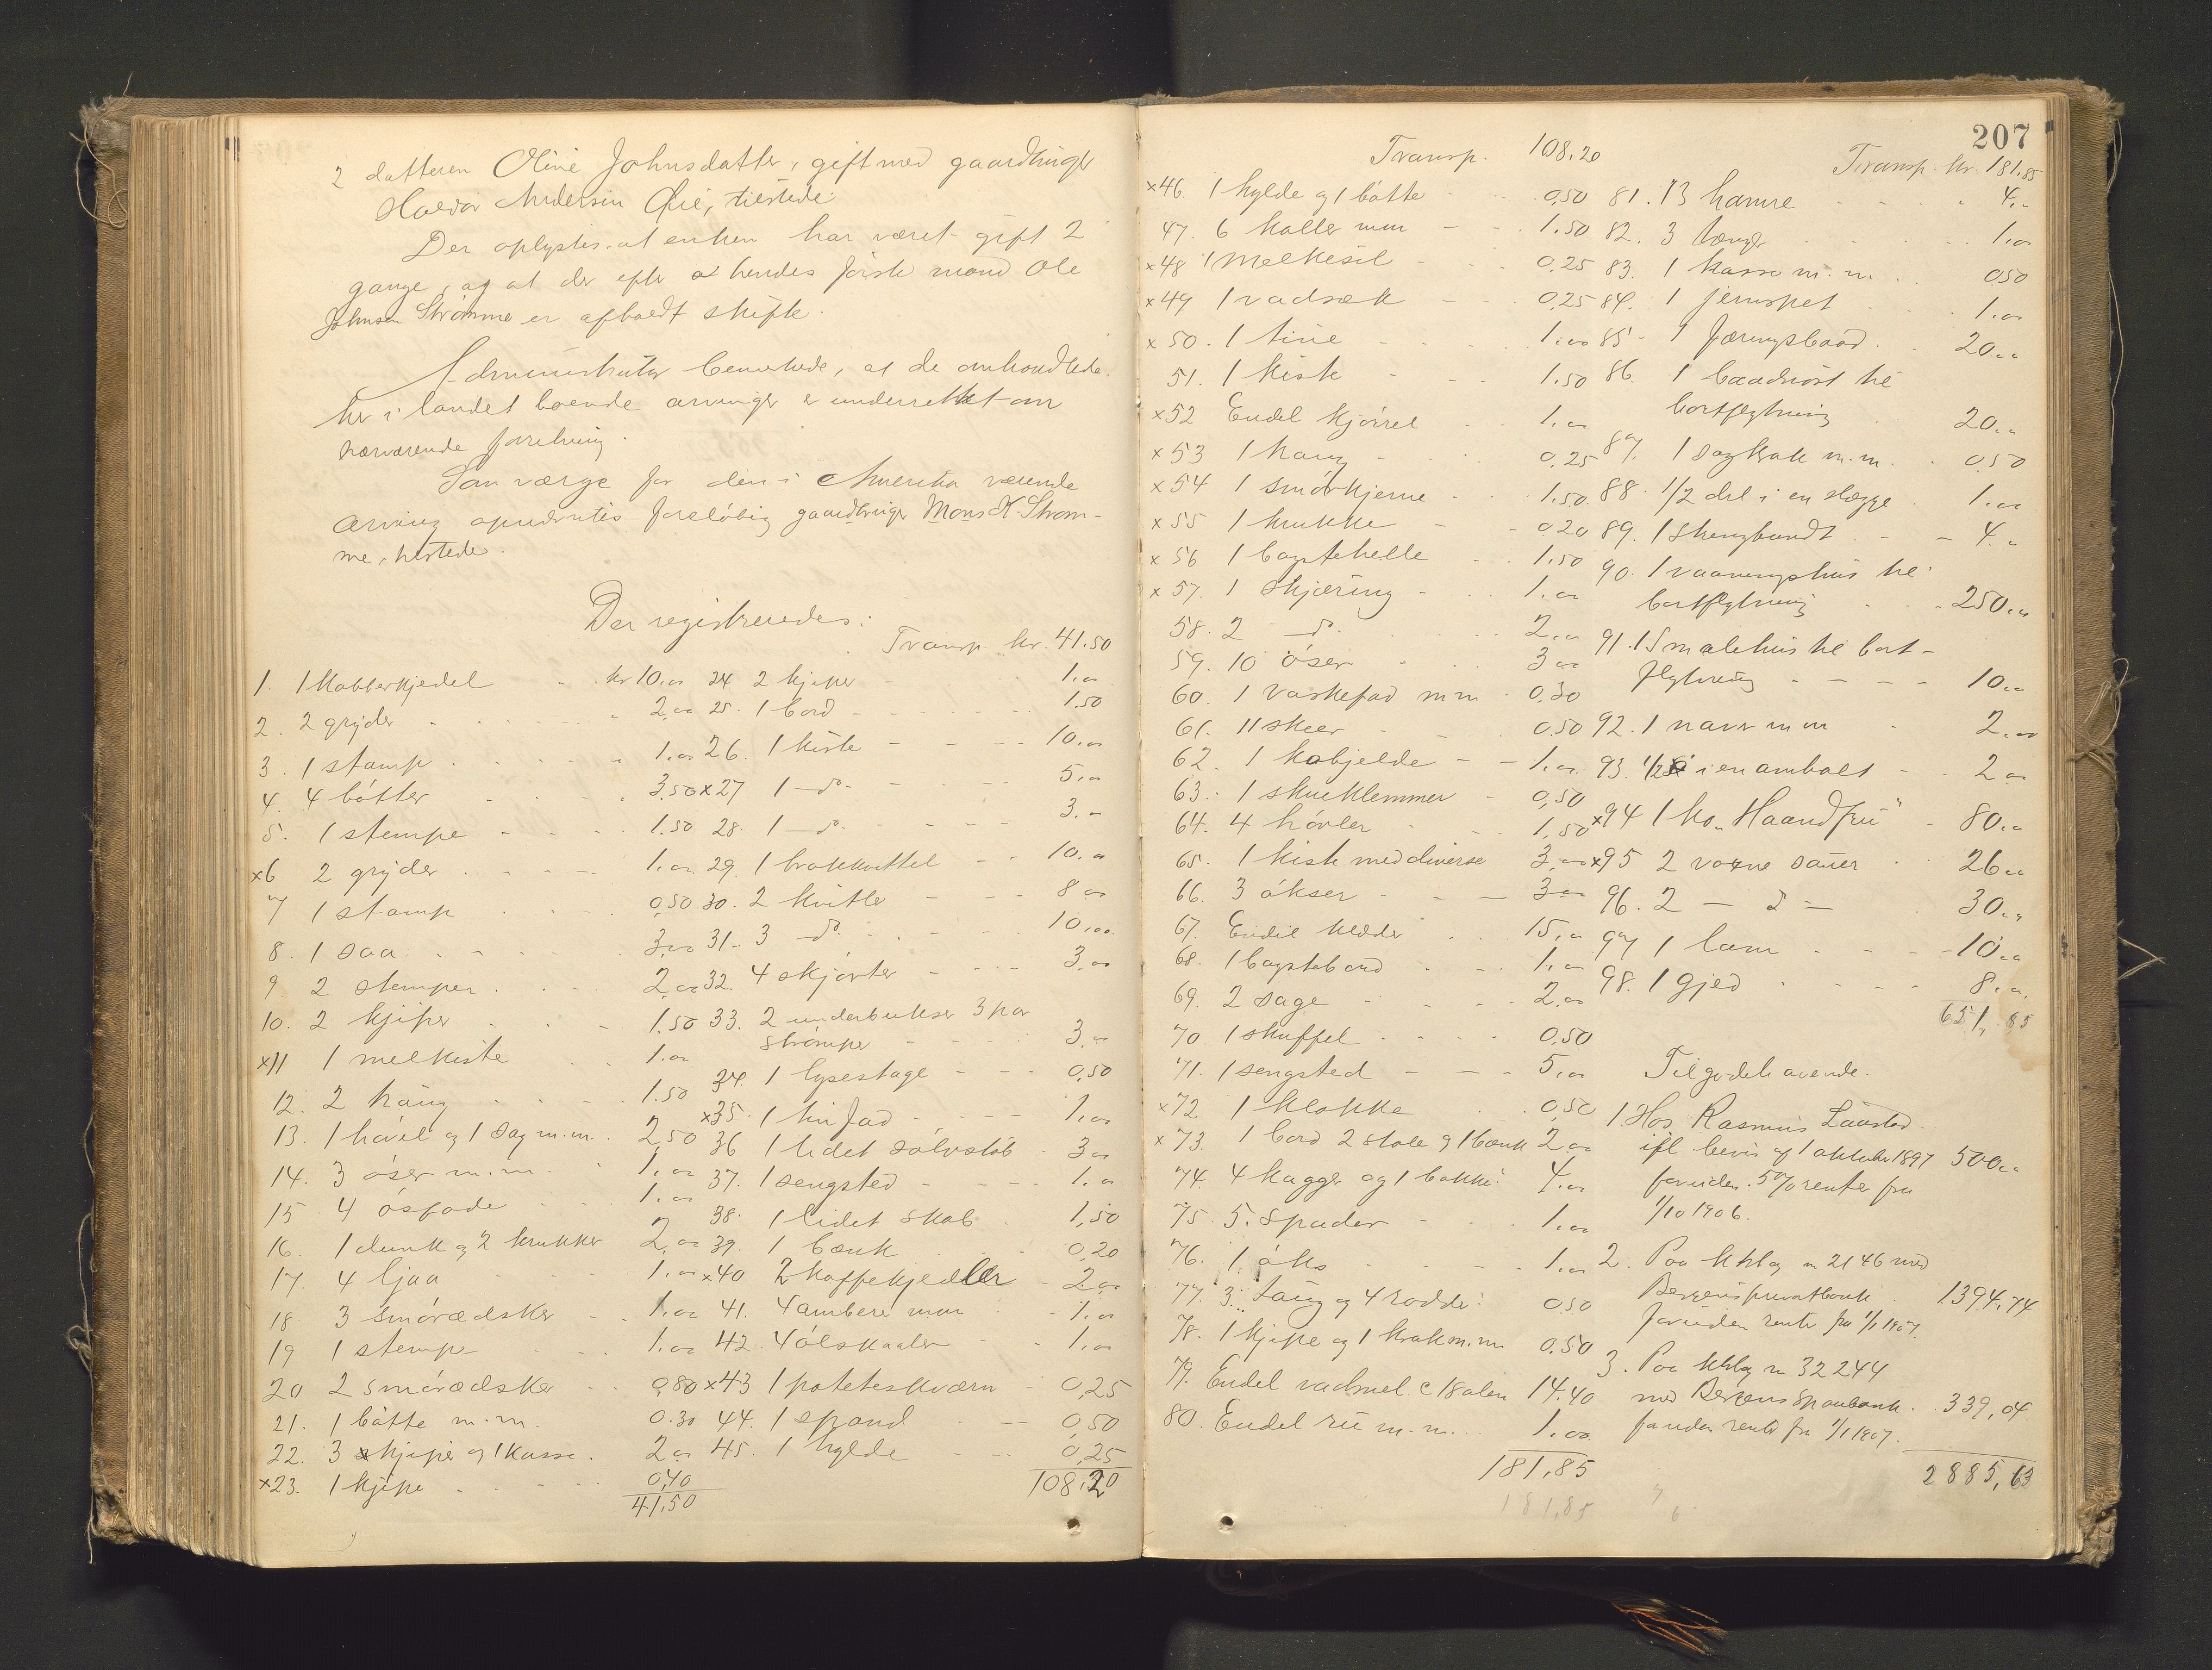 2 datteren Oline Johnsdatter, gift med gaardbruger
Haldor Andersen Øie, tilstede.
Der oplystes at enken har været gift 2
gange, og at der efter at hendes første mand Ole
Johnsen Strømme er afholdt skifte.
Administrator bemerkede, at de omhandlede
her i landet boende arvinger er underrettet om
nærværende forretning.
Som værge for den i Amerika værende
arving opnævntes foreløbig gaardbruger Mons K. Strøm-
me, hertede.
Der registreredes:
1. 1 Kobberkjedel kr 10.00
2. 2 gryder 2,00
3. 1 stamp 1.00
4. 4 bøtter 3,50
5. 1 stempe 1.50
x6 2 gryder 1.00
7 1 stamp 0,50
8. 1 saa 3,00
9. 2 stemper 2,00
10. 2 kjiper 1.50
x11 1 melkiste 1.00
12. 2 kaug 1.50
13. 1 høvel og 1 sag m.m. 2,50
14. 3 øser m.m. 1.00
15 4 øsfade 1.00
16. 1 dunk og 2 krukker 2,00
17. 4 ljaa 1.00
18. 3 smørædsker 1.00
19 1 stempe 1.00
20 2 smørædsker 0,80
21. 1 bøtte m.m. 0.30
22. 3 kjiper og 1 kasse. 2.00
x23. 1 kjipe 0,40
41,50
Transp kr. 41.50
24 2 kjiper 1.00
25. 1 bord 1.50
26. 1 kiste 10.00
x27 1 do. 5.00
28. 1 do. 3.00
29. 1 brokkvittel 10.00
30. 2 kvitler 8 00
31. 3 do. 10,00
32. 4 skjørter 3.00
33. 2 underbukser 3 par
strømper 3.00
34. 1 lysestage 0,50
x35. 1 tinfad 1.00
36 1 lidet sølvstøb 3 00
37. 1 sengsted 1.00
38. 1 lidet skab 1,50
39. 1 bænk 0,20
x40 2 kaffekjedler 2.00
41. 4 ambere m.m 1.00
42. 4 ølskaaler 1.00
x43 1 poteteskværn 0,25
44. 1 spand 0,50
45. 1 hylde 0,25
108.20
207
Transp. 108.20
x46. 1 hylde og 1 bøtte 0,50
47. 6 kaller m.m 1.50
x48 1 melkesil 0,25
x49 1 vadsæk 0,25
x50. 1 tine 1.00
51. 1 kiste 1.50
x52 Endel kjørrel 1.00
x53 1 kaug 0.25
x54 1 smørkjerne 1.50
x55 1 krukke 0.20
x56 1 bagstehelle 1.50
x57. 1 skjæring 1.00
58. 2 do. 2.00
59. 10 øser 3 00
60. 1 vaskefad m m 0,30
61. 11 skeer 0,50
62. 1 kobjelde 1.00
63. 1 skueklemmer 0,50
64. 4 høvler 1,50
65. 1 kiste med diverse 3,00
66. 3 økser 3 00
67. Endel klæder 15,00
68. 1 bagstebord 1.00
69. 2 sage 2.00
70. 1 skuffel 0.50
71. 1 sengsted 5,00
x72 1 klokke 0,50
x73. 1 bord 2 stole og 1 bænk 2 00
74. 4 kagger og 1 bakke 4.00
75. 5. spader 1.00
76. 1 øks 1.00
77. 3 taug og 4 rødder 0,50
78. 1 kjipe og 1 krak m.m 0.50
79. Endel vadmel c 18 alen 14.40
80. Endel rü m.m. 1.00
181,85
181,85
Transp. kr. 181.85
81. 13 hamre 4.00
82. 3 tænger 1.00
83. 1 kasse m.m. 0,50
84. 1 jernspet 1.00
85. 1 færingsbaad 20.00
86. 1 baadnøst til
bortflytning 20.00
87. 1 sagkrak m.m. 0,50
88. 1/2 del i en slægge 1.00
89. 1 strengbundt 4.00
90. 1 vaaningshus til
bortflytning 250.00
91. 1 Smalehus til bort-
flytning 10.00
92. 1 naver m m 2.00
93. 1/2 i en ambolt 2 00
x94 1 ko „Haandfrü" 80.00
x95 2 voxne sauer 26.00
96. 2 — do — 30.00
97 1 lam 10.00
98. 1 gjed 8.00
651,85
Tilgodehavende.
1. Hos Rasmus Laastad
ifl bevis af 1 oktober 1897 500.00
foruden 5% renter fra
1/10 1906.
2. Paa ktrbog n 2146 med
Bergens privatbank 1394,74
foruden renter fra 1/1 1907.
3. Paa ktrbog n 32244
med Bergens Sparebank 339,04
foruden renter fra 1/1 1907.
2885,63